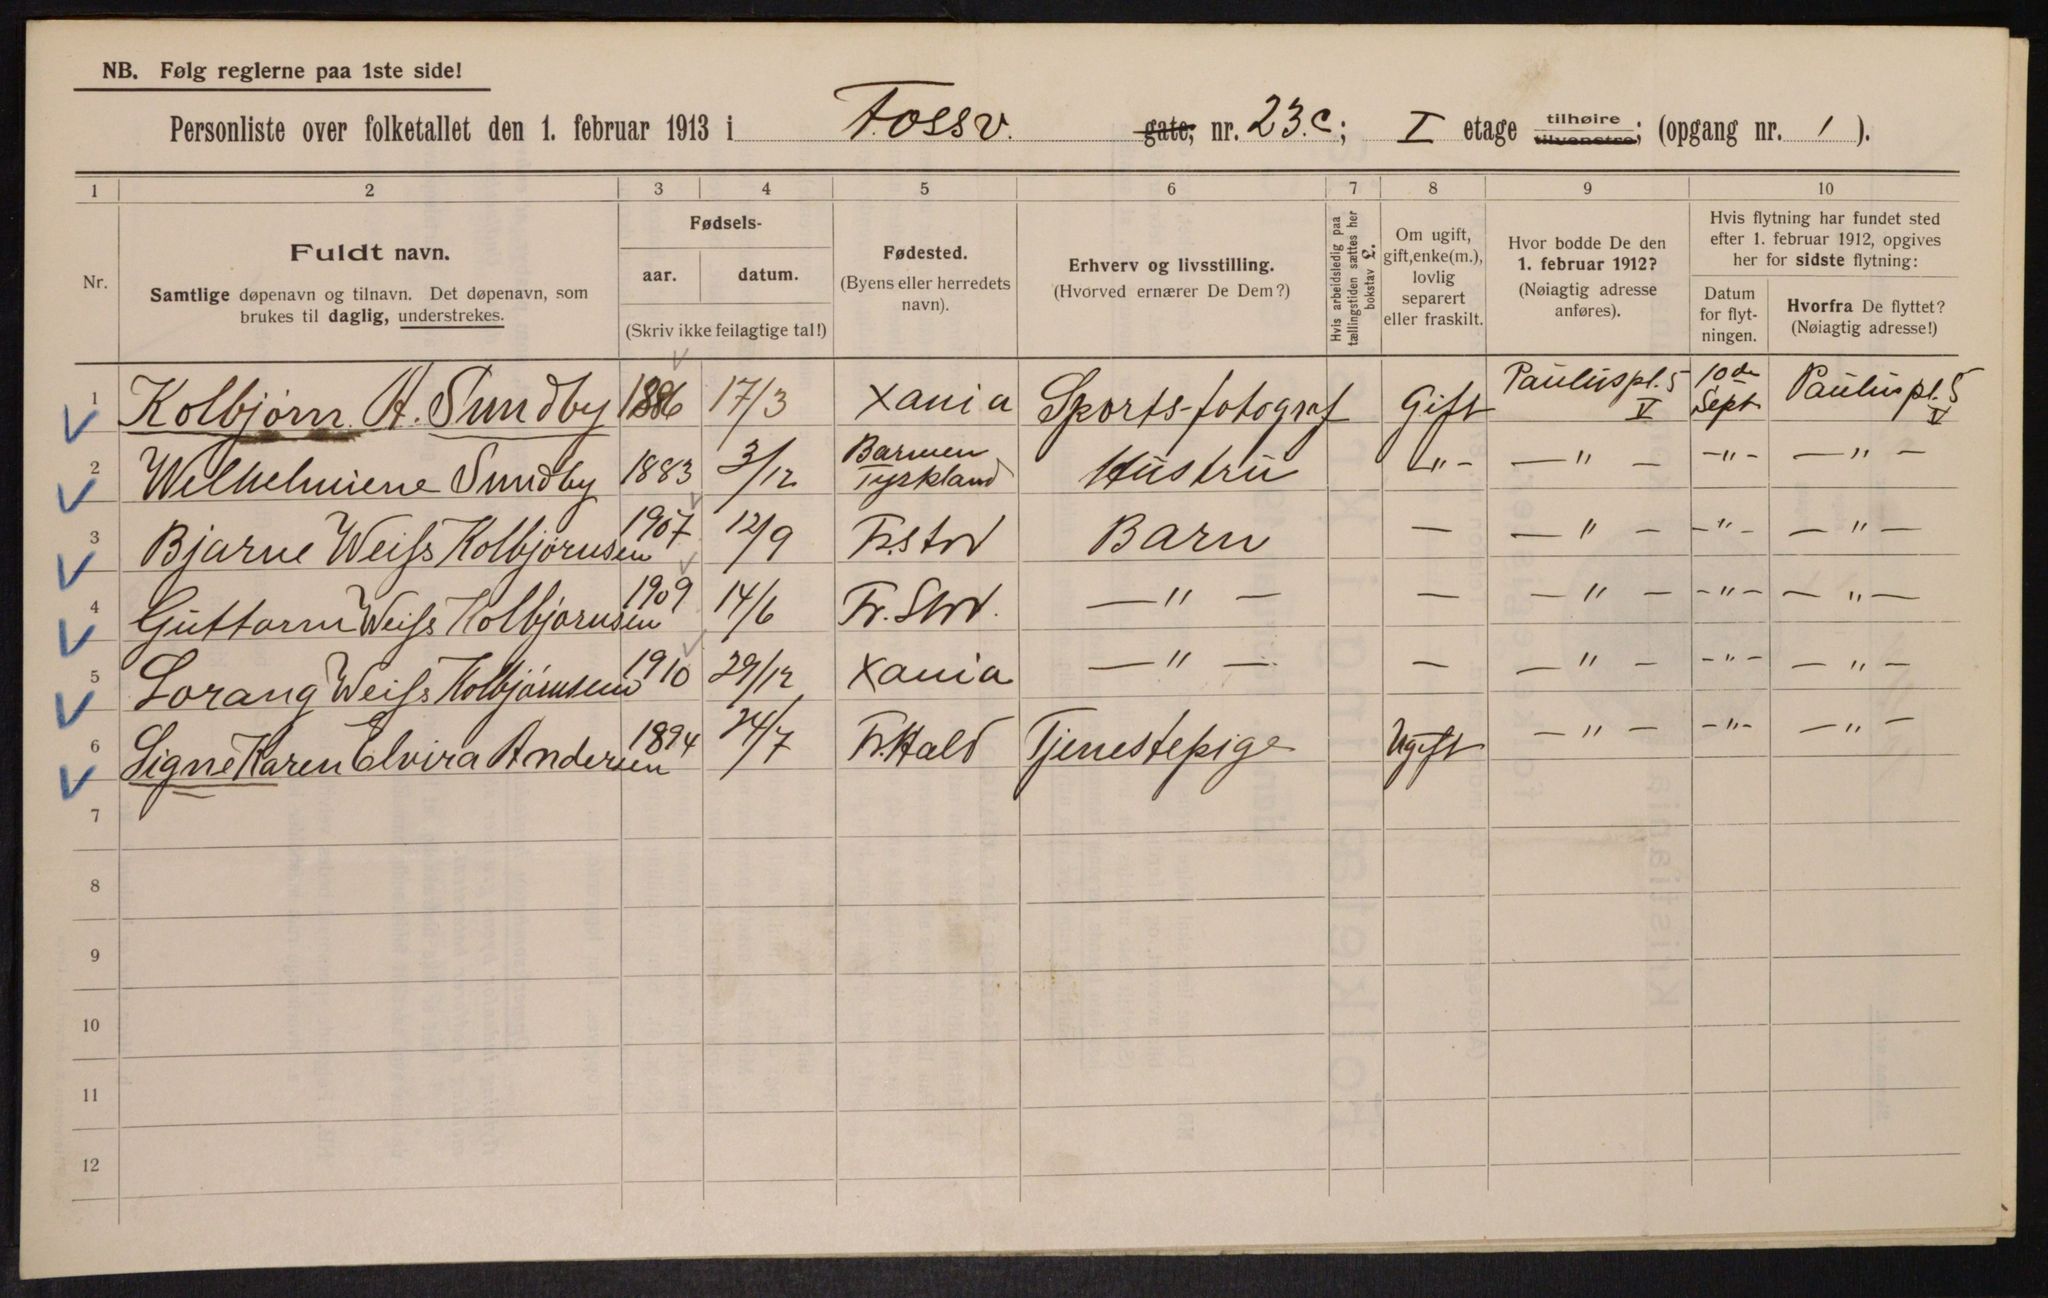 NB. Følg reglerne paa 1ste side!
Personliste over folketallet den 1. februar 1913 i Fossv. gate, nr. 23.c; I etage tilhøire tilvenstre; (opgang nr. 1).
1 2 3 4 5 6 7 8 9 10
Nr.
Fuldt navn.
Samtlige døpenavn og tilnavn. Det døpenavn, som
brukes til daglig, understrekes.
Fødsels-
aar. datum.
(Skriv ikke feilagtige tal!)
Fødested.
(Byens eller herredets
navn).
Erhverv og livsstilling.
(Hvorved ernærer De Dem?)
Hvis arbeidsledig paa
tællingstiden sættes her
bokstav £.
Om ugift,
gift, enke(m.),
lovlig
separert
eller fraskilt.
Hvor bodde De den
1. februar 1912?
(Nøiagtig adresse
anføres).
Hvis flytning har fundet sted
efter 1. februar 1912, opgives
her for sidste flytning:
Datum
for flyt-
ningen.
Hvorfra De flyttet?
(Nøiagtig adresse!)
1 Kolbjørn A. Sundby 1886 17/3 Xania Sports-fotograf Gift Pauluspl. 5 V 10de Sept Pauluspl. 5 V
2 Wilhelmiene Sundby 1883 3/12 Barmen Tyskland Hustru -"- -"- -"- -"-
3 Bjarne Weiss Kolbjørnsen 1907 12/9 Fr.stad Barn - -"- -"- -"-
4 Guttorm Weiss Kolbjørnsen 1909 14/6 Fr. Stad. -"- - -"- -"- -"-
5 Lorang Weiss Kolbjørnsen 1910 29/12 Xania -"- - -"- -"- -"-
6 Signe Karen Elvira Andersen 1894 24/7 Fr.Hald Tjenestepige Ugift -"- -"- -"-
7
8
9
10
11
12